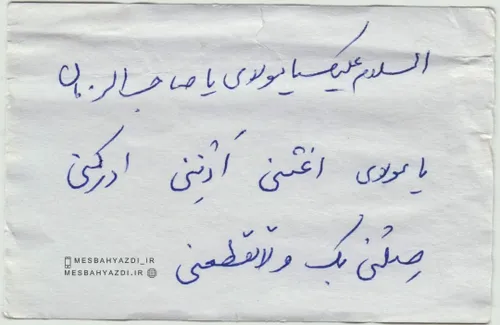 السلام علیک یا مولای یا صاحب الزمان
یا مولای اغثنی أدننی ادرکنی
صِلْنی بک ولا تقطعنی
MESBAHYAZDI_IR
MESBAHYAZDI.IR